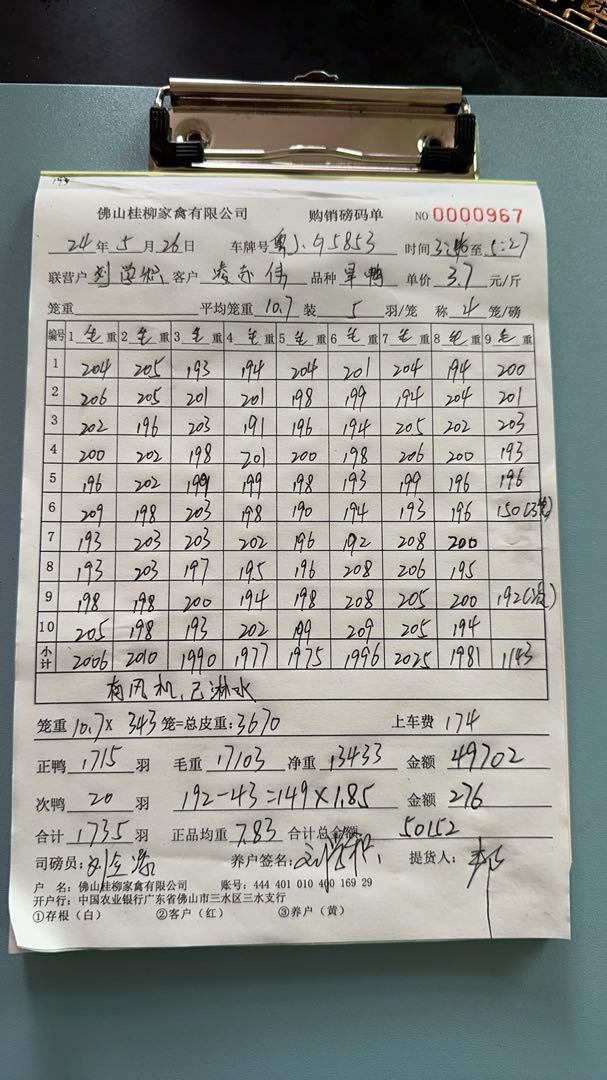 佛山桂柳家禽有限公司 购销磅码单 NO 0000967
24年5月26日 车牌号 粤J·95853 时间 至5:27
联营户 刘学 客户 凌亦伟 品种 旱鸭 单价 3.7 元/斤
笼重 平均笼重 10.7 装 5 羽/笼 称 4 笼/磅
编号 1 毛重 2 毛重 3 毛重 4 毛重 5 毛重 6 毛重 7 毛重 8 毛重 9 毛重
1 204 205 193 194 204 201 204 194 200
2 206 205 201 201 198 199 194 204 201
3 202 196 203 191 196 194 205 202 203
4 200 202 198 201 200 198 206 200 193
5 196 202 199 199 198 193 199 196 196
6 209 198 203 198 190 194 193 196 150(3笼)
7 193 203 203 202 196 192 208 200
8 193 203 197 195 196 208 206 195
9 198 198 200 194 198 208 205 200 192(次)
10 205 198 193 202 199 209 205 194
小计 2006 2010 1990 1977 1975 1996 2025 1981 1143
有风机,已淋水
笼重 10.7× 343 笼=总皮重:3670 上车费 174
正鸭 1715 羽 毛重 17103 净重 13433 金额 49702
次鸭 20 羽 192-43=149×1.85 金额 276
合计 1735 羽 正品均重 7.83 合计总金额 50152
司磅员: 养户签名: 提货人:
户 名:佛山桂柳家禽有限公司 账号:444 401 010 400 169 29
开户行:中国农业银行广东省佛山市三水区三水支行
①存根(白) ②客户(红) ③养户(黄)